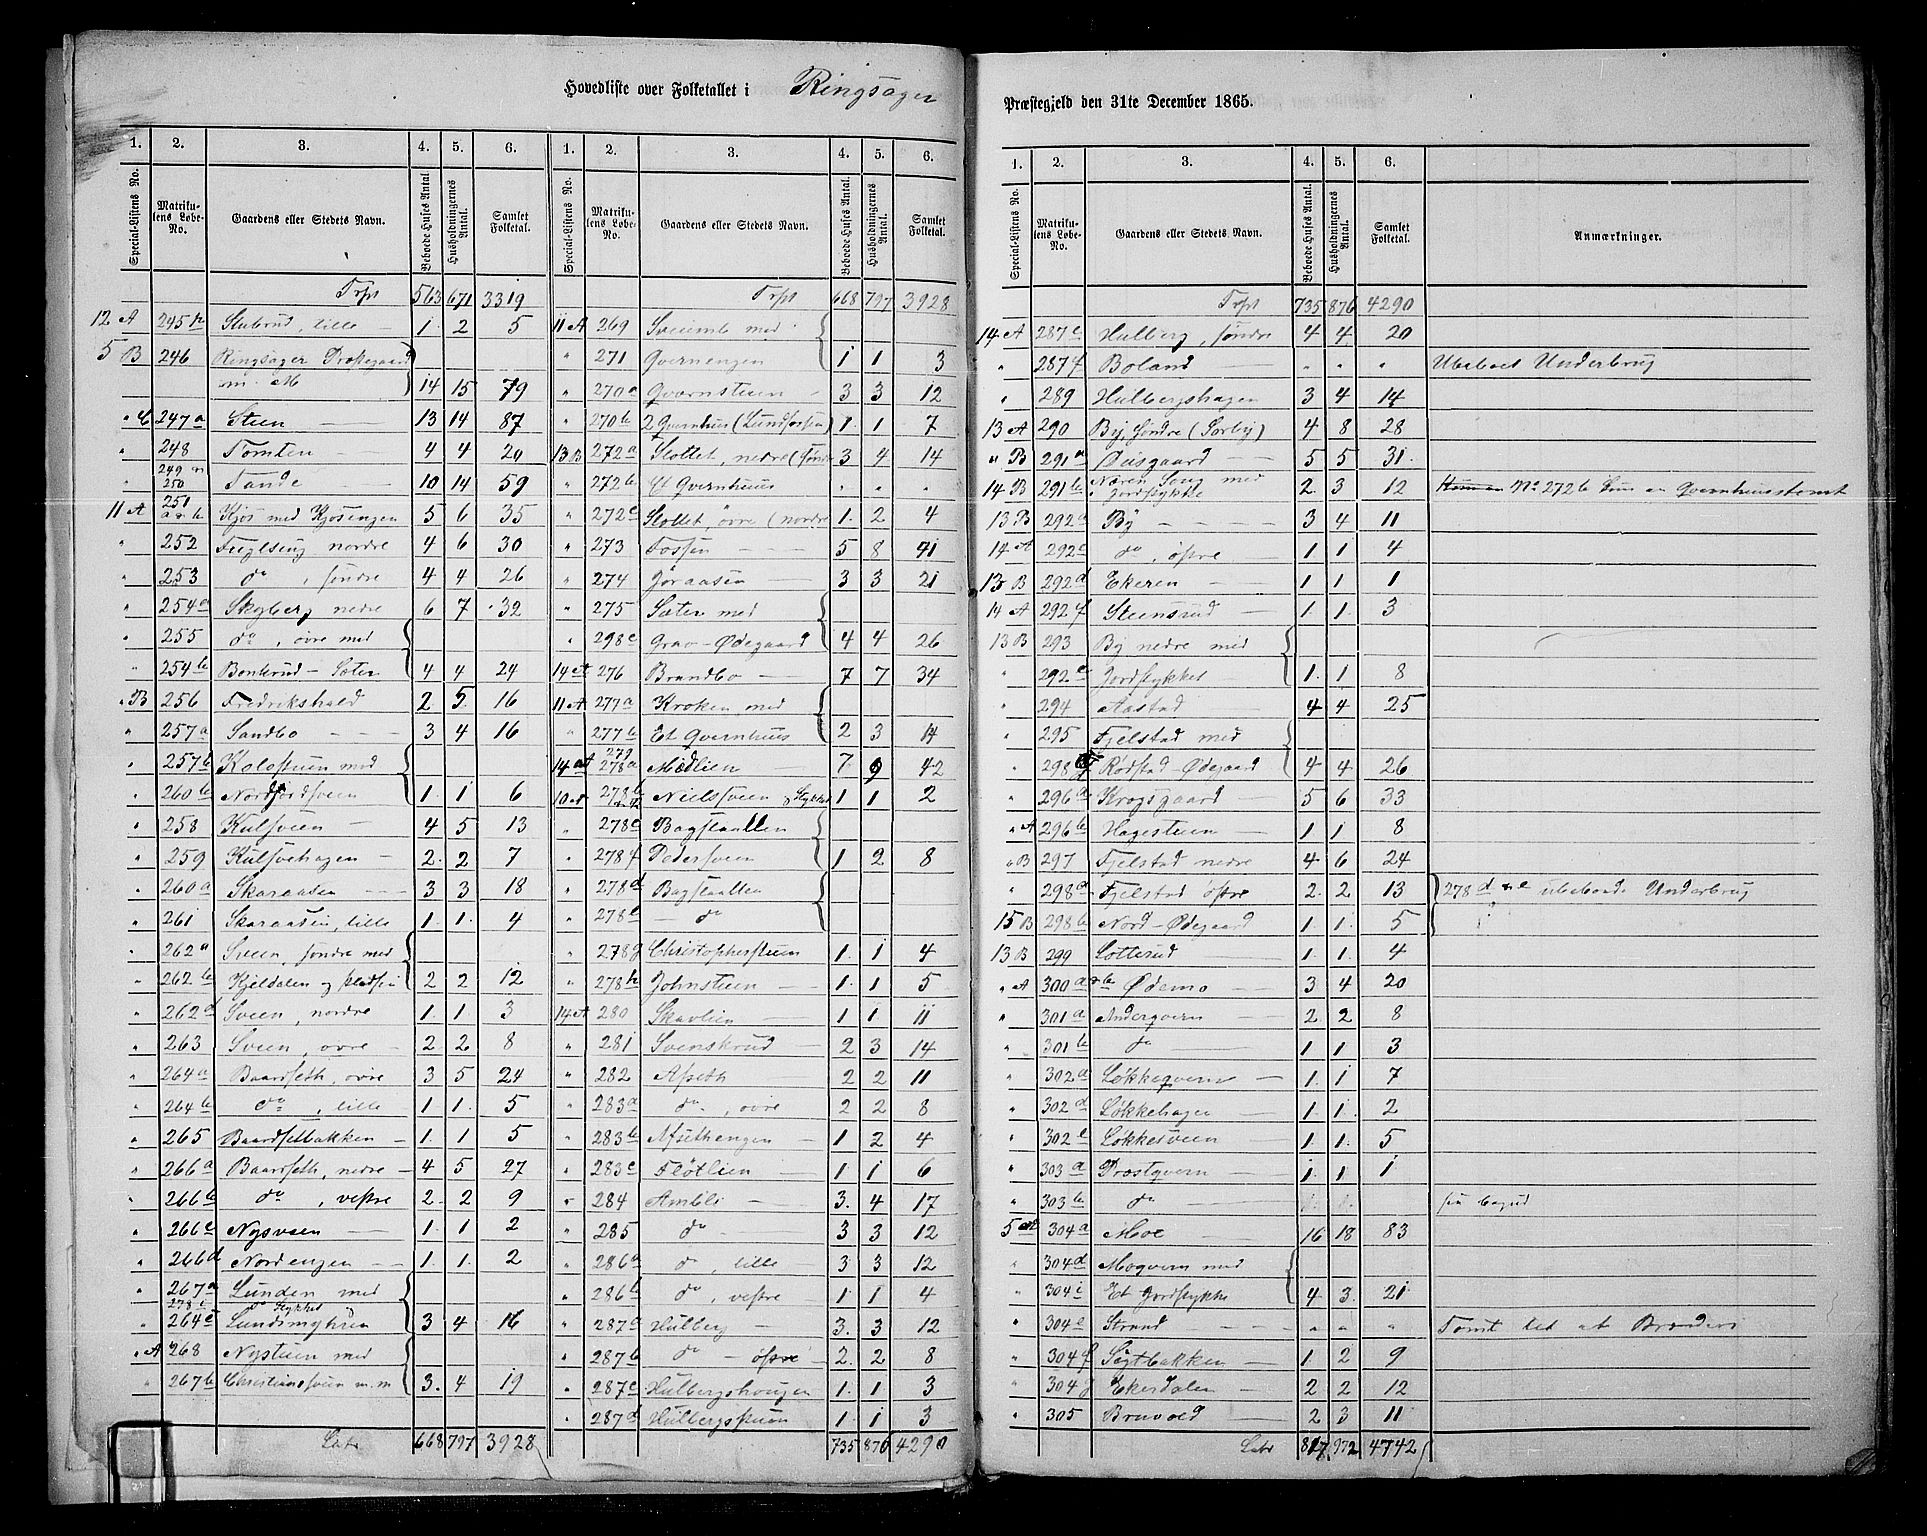 Hovedliste over Folketallet i Ringsager
1. 2. 3. 4. 5. 6. 1. 2. 3. 4. 5. 6.
Special-Listens No. Matrikulens Løbe-No. Gaardens eller Stedets Navn. Beboede Huses Antal. Husholdningernes Antal. Samlet Folketal. Special-Listens No. Matrikulens Løbe-No. Gaardens eller Stedets Navn. Beboede Huses Antal. Husholdningernes Antal. Samlet Folketal.
Trpt 563 671 3319
12 A 245h Stubrud, lille 1. 2 5
5 B 246 Ringsager Præstegaard
m. M 14 15 79
" C 247a Steen 13 14 87
" 248 Tomten 4 4 20
" 249 n 250 Tande 10 14 59
11 A 251 a & b Kjøs med Kjøsengen 5 6 35
" 252 Fuglseng nordre 4 6 30
" 253 do, søndre 4 4 26
" 254a Skyberg nedre 6 7 32
" 255 do, øvre med
" 254b Bonkrud-Sæter 4 4 24
" B 256 Fredrikshald 2 5. 16
" 257a Sandbo 3 4 16
" 257b Kolostuen med
" 260b Nordjordsveen 1. 1 6
" 258 Kulsveen 4 5 13
" 259 Kulsvehagen 2. 2 7
" 260a Skaraasen 3 3 18
" 261 Skaraasen, lille 1. 1. 4
" 262a Sveen, søndre med
" 262b Kjeldalen og 2 2 12
" 262d Sveen, nordre 1. 1 3
" 263 Sveen, øvre 2 2 8
" 264a Baardseth, øvre 3 5 24
" 264b do, lille 1 1. 5
" 265 Baardsetbakken 1. 1 5
" 266a Baardseth, nedre 4 5 27
" 266b do, vestre 2. 2 9
" 266c Nysveen 1. 1 2
" 266d Nordengen 1. 1. 2
" 267a Lunden med
278i do Stykket
" 264c Lundsmyhren 3 4 16
" A 268 Nystuen med
" 267b Christiansveen m. m 3. 4 19
Lats 668 797 3928
Trpt 668 797 3928
11 A 269 Sveum med
" 271 Qvernengen 1 1 3
" 270a Qvernstuen 3 3 12
" 270b 2 Qvernhus (Lundfossen) 1. 1 7
13 B 272a Slottet, nedre (søndre 3 4 14
" 272b Et Qvernhuus " " "
" 272c Slottet, øvre (nordre 1. 2 4
" 273 Fossen 5 8 41
" 274 Joraasen 3 3 21
" 275 Sæter med
" 298c Grav-Ødegaard 4 4 26
14 A 276 Brandbo 7 7 34
11 A 277a Kroken med
" 277b Et Qvernhuus 2 3 14
14 A 279 278a Mælien 7 9 42
10 A 278b Nielsveen & Stykket 1 1 2
" 278c Bagstaallen
" 278f Pedersveen 1 2 8
" 278d Bagstaallen
" 278e do
278g Christopherstuen 1. 1 4
" 278h Johnstuen 1. 1 5
14 A 280 Skavlien 1 1 11
" 281 Svenskrud 2 3 14
" 282 Afseth 2 2 11
" 283a do, øvre 2 2 8
" 283b Afsethengen 1 2 4
" 283c Fløtlien 1 1 6
" 284 Ambli 3. 4 17
" 285 do 3 3 12
" 286a do, lille 3 3 12
" 286b do, vestre 1 1 4
" 287a Hulberg 3. 3 12
" 287b do - østre 2. 2 8
" 287c Hulbergshougen 1. 1. 3
" 287d Hulbergstuen 1. 1 3
735 876 4290
Præstegjeld den 31te December 1865.
1. 2. 3. 4. 5. 6.
Special-Listens No. Matrikulens Løbe-No. Gaardens eller Stedets Navn. Beboede Huses Antal. Husholdningernes Antal. Samlet Folketal. Anmærkninger.
Trpt 735 876 4290
14 A 287e Hulberg, søndre 4 4 20
" 287f Boland " " " Ubeboet Underbrug
" 289 Hulbergshagen 3 4 14
13 A 290 By, søndre (Sørby) 4 8 28
" B 291a Øusgaard 5 5 31.
14 B 291b Jordstykke 2. 3 12 No 272 b Qvernhuustomt
13 B 292a By 3 4 11
14 A 292c do, østre 1. 1 4
13 B 292d Ekeren 1 1 1
14 A 292f Steensrud 1. 1. 3
13 B 293 By nedre med
" 292e Jordstykket 1. 1 8
" 294 Aastad 4 4 25
" 295 Fjelstad med
" 298 Rødstad-Ødegaard 4 4 26
" 296a Krogsgaard 5 6 33
" A 296b Hagestuen 1 1 8
" B 297 Fjelstad nedre 4 6 24
" 298a Fjelstad østre 2. 2 13 278 d & e ubeboede Underbrug
15 B 298b Nord-Ødegaard 1. 1. 5
13 B 299 Lotterud 1. 1. 4
" A 300a & b Ødemo 3 4 20
" 301a Anderqvern 2 2 8
" 301b do 1 1 3
" 302a Løkkeqvern 1. 1 7
" 302d Løkkehagen 1. 1. 2
" 302e Løkkesveen 1. 1. 5
" 303a Prostqvern 1 1 1
" 303b do
5 A 304a Moe 16 18 83
" 304d Moqvern med
" 304i Et Jordstykke 4 3. 21
" 304e Strand " " " Tomt til et Brænderi
" 304f Sigtbakken 1. 2 9
" 304g Ekerdalen 2 2 12
" 305 Bruvold 2 3 11
Lats 817 972 4742